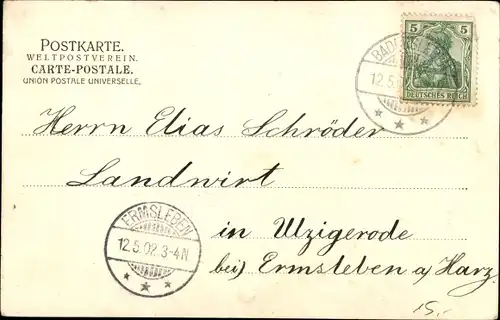 POSTKARTE.
WELTPOSTVEREIN.
CARTE-POSTALE.
UNION POSTALE UNIVERSELLE.
5 5
DEUTSCHES REICH
12.5
Herrn Elias Schröder
Landwirt
ERMSLEBEN
12.5.02.3-4N
in Ulzigerode
bei Ermsleben a/Harz.
15.-